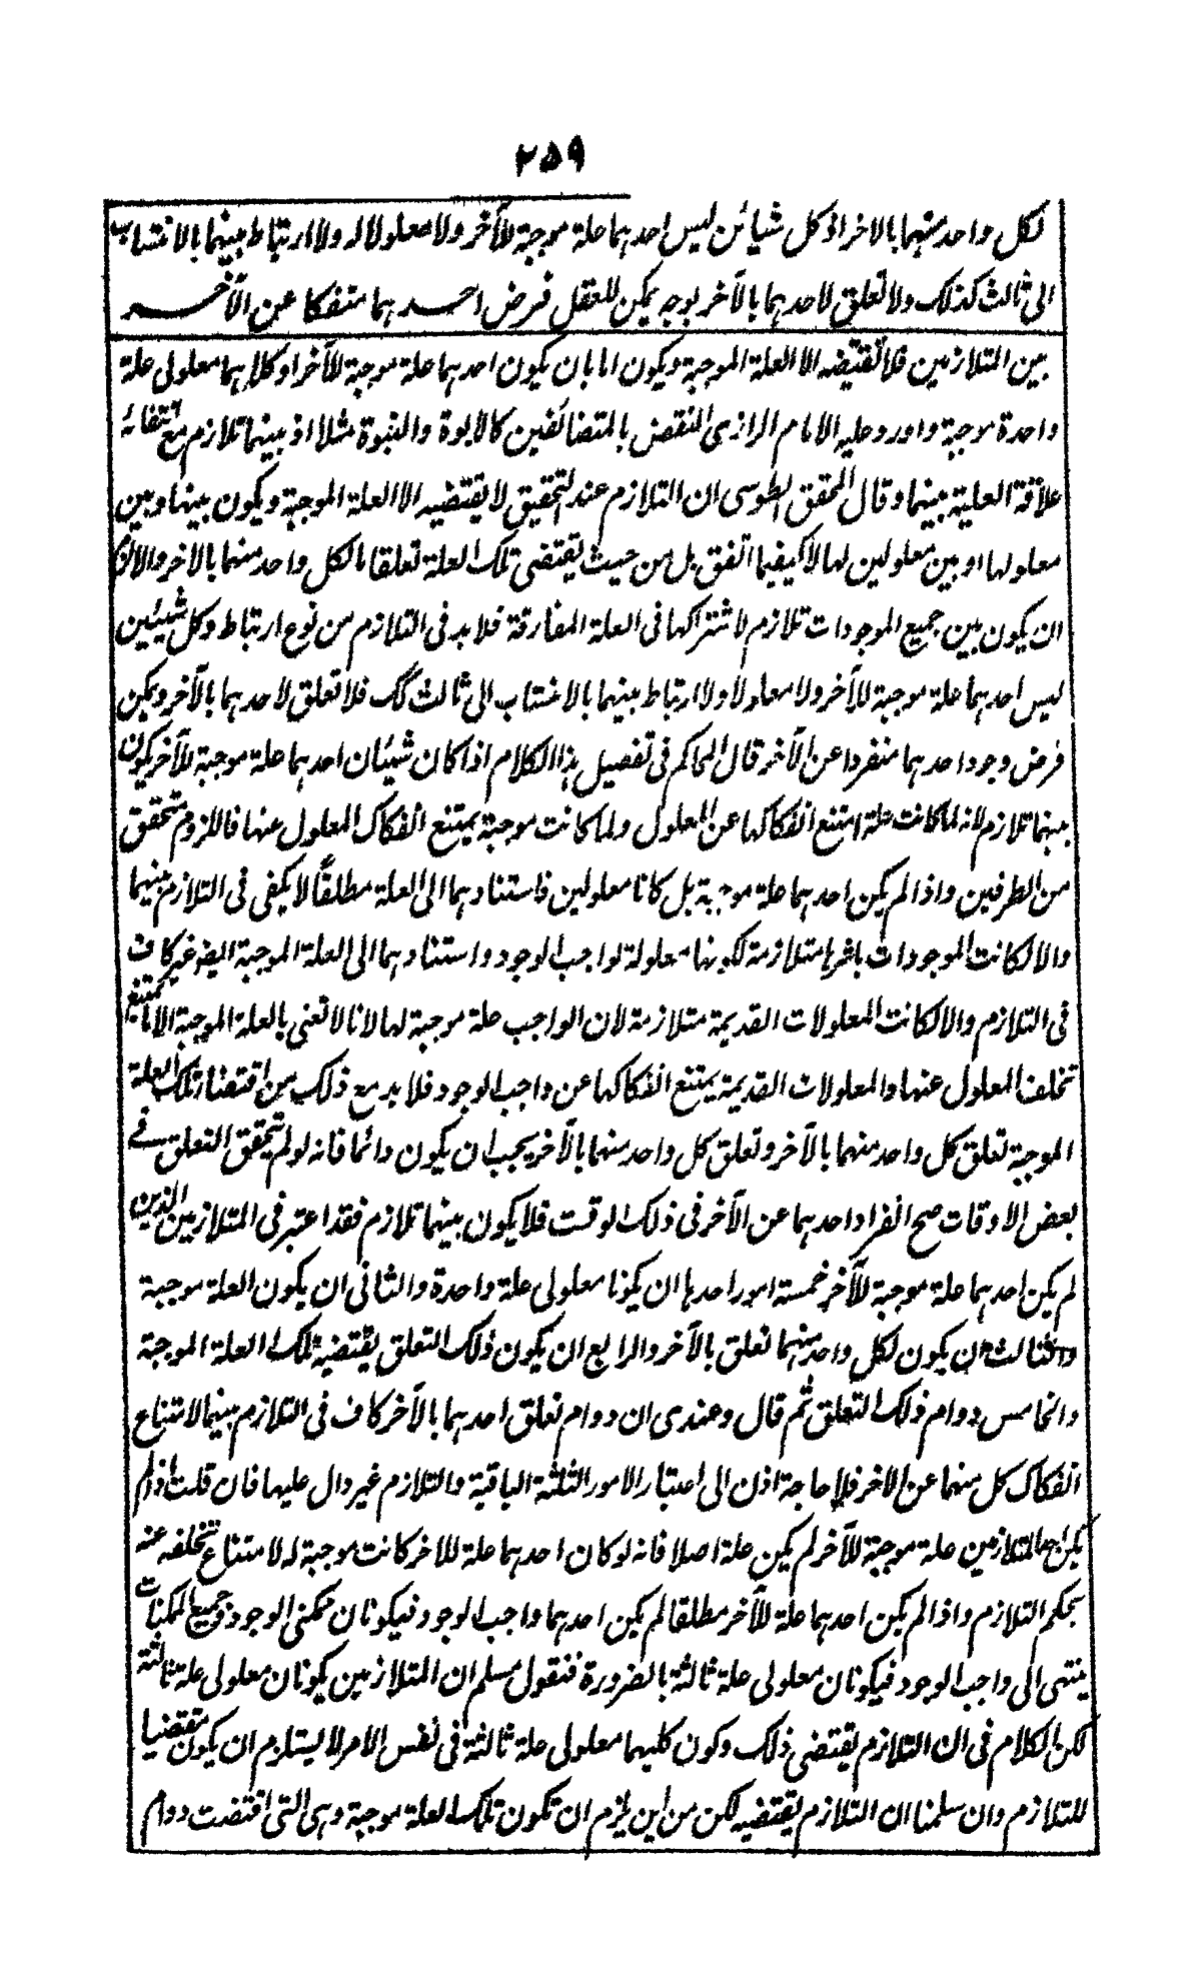 ٢٥٩
لكل واحد منهما بالاخر اذ كل شيائن ليس احدهما علة موجبة للآخر ولا معلولا له ولا ارتباط بينهما بالانتساب
الى ثالث كذلك ولا تعلق لاحدهما بالآخر بوجه يمكن للعقل فرض احدهما منفكا عن الآخر
بين التلازمين فلا تقتضيه الا العلة الموجبة ويكون اما بان يكون احدهما علة موجبة للآخر او كلاهما معلولى علة
واحدة موجبة واورد عليه الامام الرازى النقض بالمتضائفين كالابوة والنبوة مثلا اذ بينهما تلازم مع انتفائه
علاقة العلية بينهما وقال المحقق الطوسى ان التلازم عند التحقيق لا يقتضيه الا العلة الموجبة ويكون بينها وبين
معلولها او بين معلولين لها لا كيفما اتفق بل من حيث تقتضى تلك العلة تعلقا ما لكل واحد منهما بالاخر والا لزم
ان يكون بين جميع الموجودات تلازم لاشتراكها فى العلة المفارقة فلا بد فى التلازم من نوع ارتباط وكل شيئين
ليس احدهما علة موجبة للآخر ولا معلولا ولا ارتباط بينهما بالانتساب الى ثالث كك فلا تعلق لاحدهما بالآخر ويمكن
فرض وجود احدهما منفردا عن الآخر قال المحاكم فى تفصيل هذا الكلام اذا كان شيئان احدهما علة موجبة للآخر يكون
بينهما تلازم لانه لما كانت علة امتنع انفكاكها عن المعلول ولما كانت موجبة يمتنع انفكاك المعلول عنها فاللزوم متحقق
من الطرفين واذا لم يكن احدهما علة موجبة بل كانا معلولين فاستنادهما الى العلة مطلقًا لا يكفى فى التلازم بينهما
والا لكانت الموجودات باسرها متلازمة لكونها معلولة لواجب الوجود واستنادهما الى العلة الموجبة ايضا غير كاف
فى التلازم والا لكانت المعلولات القديمة متلازمة لان الواجب علة موجبة لها لانا لا نعنى بالعلة الموجبة الا ما يمتنع
تخلف المعلول عنها والمعلولات القديمة يمتنع انفكاكها عن واجب الوجود فلا بد مع ذلك من اقتضاء تلك العلة
الموجبة تعلق كل واحد منهما بالآخر وتعلق كل واحد منهما بالآخر يجب ان يكون دائما فانه لو لم يتحقق التعلق فى
بعض الاوقات صح انفراد احدهما عن الآخر فى ذلك الوقت فلا يكون بينهما تلازم فقد اعتبر فى المتلازمين الذين
لم يكن احدهما علة موجبة للآخر خمسة امور احدها ان يكونا معلولى علة واحدة والثانى ان يكون العلة موجبة
والثالث ان يكون لكل واحد منهما تعلق بالآخر والرابع ان يكون ذلك التعلق يقتضيه تلك العلة الموجبة
والخامس دوام ذلك التعلق ثم قال وعندى ان دوام تعلق احدهما بالآخر كاف فى التلازم بينهما لامتناع
انفكاك كل منهما عن الاخر فلا حاجة اذن الى اعتبار الامور الثلثة الباقية والتلازم غير دال عليها فان قلت اذا لم
يكن احد المتلازمين علة موجبة للآخر لم يكن علة اصلا فانه لو كان احدهما علة للاخر كانت موجبة له لامتناع تخلفه عنه
بحكم التلازم واذا لم يكن احدهما علة للآخر مطلقا لم يكن احدهما واجب الوجود فيكونان ممكنى الوجود وجميع الممكنات
ينتهى الى واجب الوجود فيكونان معلولى علة ثالثة بالضرورة فنقول مسلم ان المتلازمين يكونان معلولى علة ثالثة
لكن الكلام فى ان التلازم يقتضى ذلك وكون كليهما معلولى علة ثالثة فى نفس الامر لا يستلزم ان يكون مقتضيا
للتلازم وان سلمنا ان التلازم يقتضيه لكن من اين يلزم ان تكون تلك العلة موجبة وهى التى اقتضت دوام